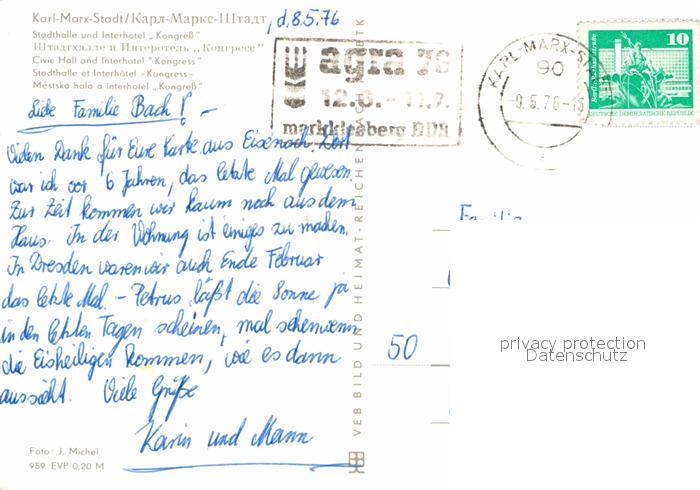 Karl-Marx-Stadt/Карл-Маркс-Штадт, d. 8.5.76
Stadthalle und Interhotel „Kongreß"
Штадтхалле и Интеротель „Конгресс"
Civic Hall and Interhotel "Kongress"
Stadthalle et Interhôtel -Kongress-
Městská hala a interhotel „Kongreß"
Liebe Familie Bach! –
Vielen Dank für Eure Karte aus Eisenach, dort
war ich vor 6 Jahren, das letzte Mal gewesen.
Zur Zeit kommen wir kaum noch aus dem
Haus. In der Wohnung ist einiges zu machen.
In Dresden waren wir auch Ende Februar
das letzte Mal. – Petrus läßt die Sonne ja
in den letzten Tagen scheinen, mal sehen wenn
die Eisheiligen kommen, wie es dann
aussieht. Viele Grüße
Karin und Mann
Foto: J. Michel
959 EVP 0,20 M
VEB BILD UND HEIMAT · REICHENBACH
agra 76
12.6. - 11.7.
markkleeberg DDR
KARL-MARX-ST
90
10
DEUTSCHE DEMOKRATISCHE REPUBLIK
50
privacy protection
Datenschutz